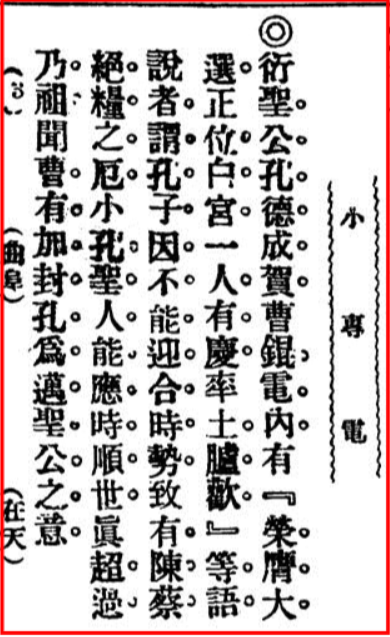 小專電
◎衍聖公孔德成賀曹錕電內有『榮膺大
選正位白宮一人有慶率土臚歡』等語
說者謂孔子因不能迎合時勢致有陳蔡
絕糧之厄小孔聖人能應時順世眞超過
乃祖聞曹有加封孔爲邁聖公之意
(曲阜) (在天)